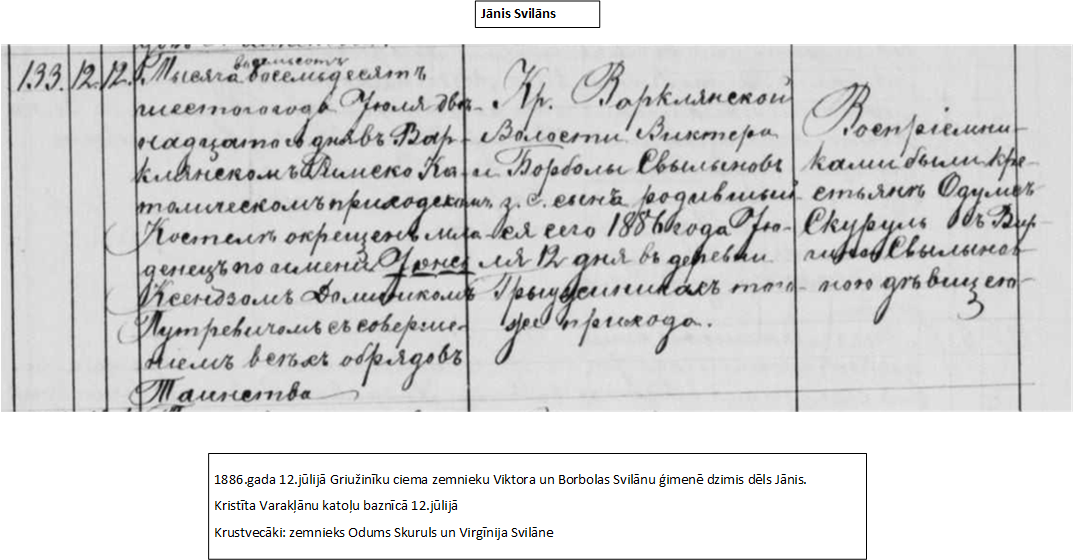 Jānis Svilāns
133. 12. 12.
Тысяча восемьсотъ восемьдесятъ
шестого года Іюля двѣ-
надцатого дня въ Вар-
клянскомъ Римско Ка-
толическомъ приходскомъ
Костелѣ окрещенъ мла-
денецъ по имени
Ксендзомъ Доминикомъ
Путревичомъ съ соверше-
ніемъ всѣхъ обрядовъ
Таинства
Кр. Варклянской
Волости Виктера
и Борболы Свылыновъ
з. с. сынъ родившій-
ся сего 1886 года Ію-
ля 12 дня въ деревни
того-
же прихода.
Воспріемни-
ками были кре-
стьянъ Одумсъ
Скуруль съ Вир-
Свылынов-
ною дѣвицею
1886.gada 12.jūlijā Griužinīku ciema zemnieku Viktora un Borbolas Svilānu ģimenē dzimis dēls Jānis.
Kristīta Varakļānu katoļu baznīcā 12.jūlijā
Krustvecāki: zemnieks Odums Skuruls un Virgīnija Svilāne